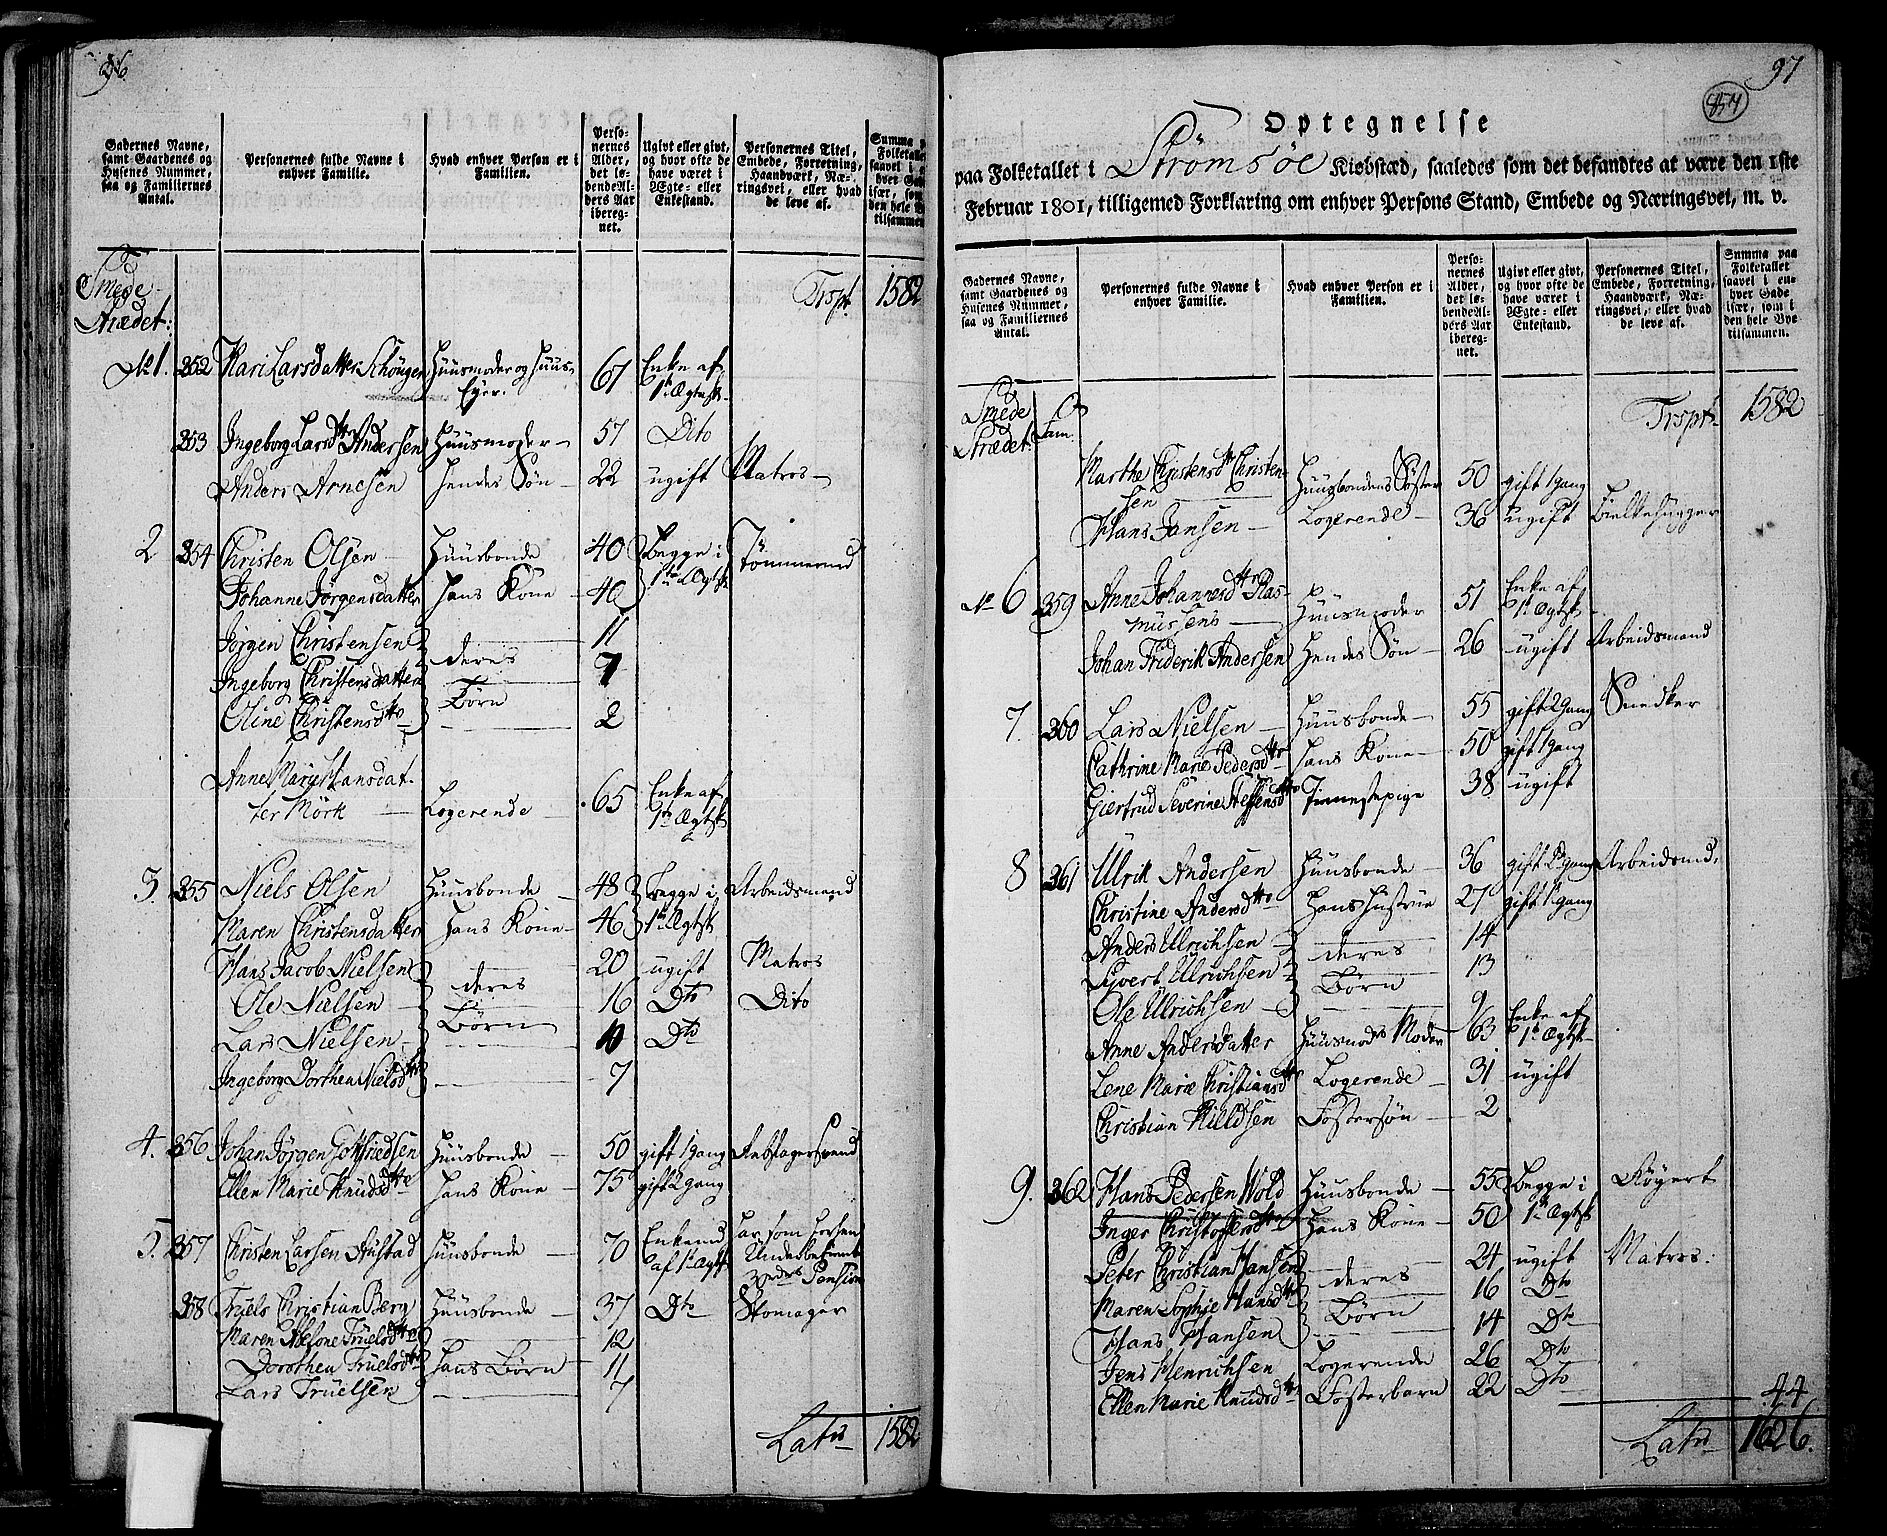 96.
Gadernes Navne, samt Gaardenes og Husenes Nummer, saa og Familiernes Antal.
Personernes fulde Navne i enhver Familie.
Hvad enhver Person er i Familien.
Personernes Alder, det løbendeAlders Aar iberegnet.
Ugivt eller givt, og hvor ofte de have været i Ægte- eller Enkestand.
Personernes Titel, Embede, Forretning, Haandværk, Næringsvei, eller hvad de leve af.
Smede-
Strædet:
Trspt. 1582
No 1. 352 Kari Larsdatter Schöugen Huusmoder og Huus- 67 Enke af
Eyer. 1te Ægtesk.
353 Ingeborg Larsdtr Andersen Huusmoder 57 Dito
Anders Arnesen hendes Søn 22 ugift Matros
2 354 Christen Olsen Huusbonde 40 Begge i Tømmermd
Johanne Jørgensdatter hans Kone 40 1te Ægtsk
Jørgen Christensen 11
Ingeborg Christensdatter deres 7
Oline Christensdtr Børn 2
Anne Marie Hansdat-
ter Mörk Logerende 65 Enke af
1te Ægtsk
3. 355 Niels Olsen Huusbonde 48 Begge i Arbeidsmand
Maren Christensdatter Hans Kone 46 1te Ægtsk
Hans Jacob Nielsen 20 ugift Matros
Ole Nielsen deres 16 Dto Dito
Lars Nielsen Børn 10 Dto
Ingeborg Dorthea Nielsdtr 7
4. 356 Johan Jørgen Gotfriedsen Huusbonde 50 gift 1 Gang
Ellen Marie Knudsdtr hans Kone 75 gift 2 gang
5. 357 Christen Larsen Huusbonde 70 Enkemd
af 1te Ægtsk
Pension
358 Truels Christian Berg Huusbonde 37 Dto Skomager
Maren Truelsdtr 12
Dorothea Truelsdtr hans Børn 11
Lars Truelsen 7
Latus 1582
97
854
Optegnelse
paa Folketallet i Strømsøe Kiøbstæd, saaledes som det befandtes at være den 1ste
Februar 1801, tilligemed Forklaring om enhver Persons Stand, Embede og Næringsvei, m. v.
Gadernes Navne, samt Gaardenes og Husenes Nummer, saa og Familiernes Antal.
Personernes fulde Navne i enhver Familie.
Hvad enhver Person er i Familien.
Personernes Alder, det løbendeAlders Aar iberegnet.
Ugivt eller givt, og hvor ofte de have været i Ægte- eller Enkestand.
Personernes Titel, Embede, Forretning, Haandværk, Næringsvei, eller hvad de leve af.
Summa paa Folketallet saavel i enhver Gade især, som i den hele Bye tilsammen.
Smede
Strædet Fam.
Trspt 1582
Marthe Christensdtr Christen-
sen Huusbondens Søster 50 gift 1 gang
Hans Jansen Logerende 36 ugift Bielkehugger
No 6 359 Anne Johannesdtr Ras- 51 Enke af
mussens Huusmoder 1te Ægtsk
Johan Friderik Andersen Hendes Søn 26 ugift Arbeidsmand
7. 360 Lars Nielsen Huusbonde 55 gift 2 Gang Snedker
Cathrine Marie Pedersdtr hans Kone 50 gift 1 Gang
Giertrud Severine Steffensdtr Tinnestepige 38 ugift
8 361 Ulrik Andersen Huusbonde 36 gift 2 gang Arbeidsmd.
Christine Andersdtr Hans Hustrue 27 gift 1 gang
Anders Ulrichsen deres 14
Sivert Ulrichsen Børn 13
Ole Ulrichsen 9
Anne Andersdatter Huusmodes Moder 63 Enke af
1te Ægtsk
Lene Marie Christiansdtr Logerende 31 ugift
Christian Kieldsen Fostersøn 2
9. 362 Hans Pedersen Wold Huusbonde 55 Begge i
Inger Christoffersdtr Hans Kone 50 1te Ægtsk
Peter Christian Hansen 24 ugift Matros.
Maren Sophie Hansdtr deres 16 Dto
Hans Hansen Børn 14 Dto
Jens Henrichsen Logerende 26 Dto
Ellen Marie Knudsdtr Fosterbarn 22 Dto 44
Latus 1626.